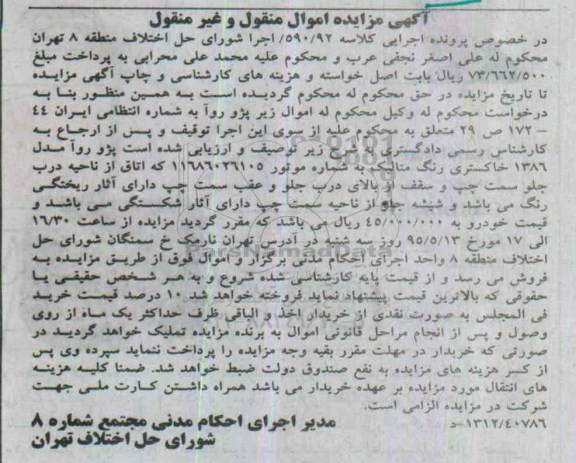 آگهی مزایده اموال منقول و غیر منقول
در خصوص پرونده اجرایی کلاسه ۵۹۰/۹۲/ اجرا شورای حل اختلاف منطقه ۸ تهران
محکوم له علی اصغر نجفی عرب و محکوم علیه محمد علی محرابی به پرداخت مبلغ
۷۳/۶۶۲/۵۰۰ ریال بابت اصل خواسته و هزینه های کارشناسی و چاپ آگهی مزایده
تا تاریخ مزایده در حق محکوم له محکوم گردیده است به همین منظور بنا به
درخواست محکوم له وکیل محکوم له اموال زیر پژو روآ به شماره انتظامی ایران ۴۴
– ۱۷۲ ص ۲۹ متعلق به محکوم علیه از سوی این اجرا توقیف و پس از ارجاع به
کارشناس رسمی دادگستری به شرح زیر توصیف و ارزیابی شده است پژو روآ مدل
۱۳۸۶ خاکستری رنگ متالیک به شماره موتور ۱۱۶۸۶۰۲۶۱۰۵ که اتاق از ناحیه درب
جلو سمت چپ و سقف از بالای درب جلو و عقب سمت چپ دارای آثار ریختگی
رنگ می باشد و شیشه جلو از ناحیه سمت چپ دارای آثار شکستگی می باشد و
قیمت خودرو به ۴۵/۰۰۰/۰۰۰ ریال می باشد که مقرر گردید مزایده از ساعت ۱۶/۳۰
الی ۱۷ مورخ ۹۵/۵/۱۳ روز سه شنبه در آدرس تهران نارمک خ سمنگان شورای حل
اختلاف منطقه ۸ واحد اجرای احکام مدنی برگزار و اموال فوق از طریق مزایده به
فروش می رسد و از قیمت پایه کارشناسی شده شروع و به هر شخص حقیقی یا
حقوقی که بالاترین قیمت پیشنهاد نماید فروخته خواهد شد ۱۰ درصد قیمت خرید
فی المجلس به صورت نقدی از خریدار اخذ و الباقی ظرف حداکثر یک ماه از روی
وصول و پس از انجام مراحل قانونی اموال به برنده مزایده تملیک خواهد گردید در
صورتی که خریدار در مهلت مقرر بقیه وجه مزایده را پرداخت ننماید سپرده وی پس
از کسر هزینه های مزایده به نفع صندوق دولت ضبط خواهد شد. ضمنا کلیه هزینه
های انتقال مورد مزایده بر عهده خریدار می باشد همراه داشتن کارت ملی جهت
شرکت در مزایده الزامی است.
۱۳۱۲/۴۰۷۸۶–د
مدیر اجرای احکام مدنی مجتمع شماره ۸
شورای حل اختلاف تهران